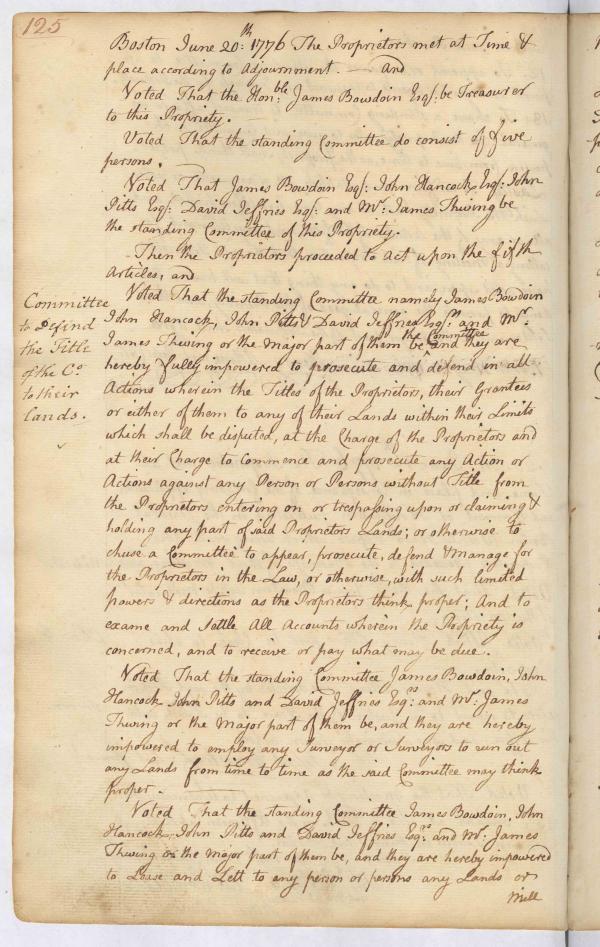 125
Boston June 20th: 1776 The Proprietors met at Time &
place according to Adjournment. — and
Voted That the Honble James Bowdoin Esqr. be Treasurer
to this Propriety. —
Voted That the standing Committee do consist of five
persons. —
Voted That James Bowdoin Esqr: John Hancock Esqr: John
Pitts Esqr: David Jeffries Esqr: and Mr: James Thwing be
the standing Committee of this Propriety.
- Then the Proprietors proceeded to act upon the fifth
Article, and
Voted That the standing Committee namely James Bowdoin
John Hancock, John Pitts & David Jeffries Esqrs and Mr.
James Thwing or the Major part of them be the Committee and they are
hereby fully impowered to prosecute and defend in all
Actions wherein the Titles of the Proprietors, their Grantees
or either of them to any of their Lands within their Limits
which shall be disputed, at the Charge of the Proprietors and
at their Charge to Commence and prosecute any Action or
Actions against any Person or Persons without Title from
the Proprietors entering on or trespassing upon or claiming &
holding any part of said Proprietors Lands; or otherwise to
chuse a Committee to appear, prosecute, defend & manage for
the Proprietors in the Law, or otherwise, with such limited
powers & directions as the Proprietors think proper; And to
exame and settle All Accounts wherein the Propriety is
concerned, and to receive or pay what may be due.
Voted That the standing Committee James Bowdoin, John
Hancock John Pitts and David Jeffries Esqrs: and Mr: James
Thwing or the Major part of them be, and they are hereby
impowered to employ any Surveyor or Surveyors to run out
any Lands from time to time as the said Committee may think
proper. —
Voted That the standing Committee James Bowdoin, John
Hancock, John Pitts and David Jeffries Esqrs: and Mr: James
Thwing or the Major part of them be, and they are hereby impowered
to Lease and Lett to any person or persons any Lands or
Mill
Committee
to Defend
the Title
of the Co.
to their
lands.